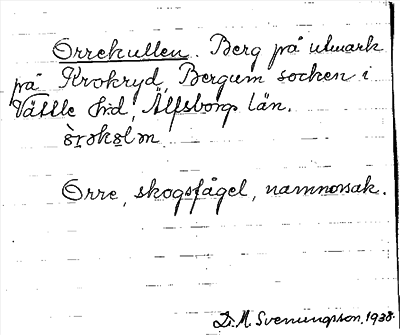 Orrekullen. Berg på utmark
på Krokryd, Bergum socken i
Vättle hd, Älfsborgs län.

Orre, skogsfågel, namnorsak.
D. A. Svenungsson, 1938.